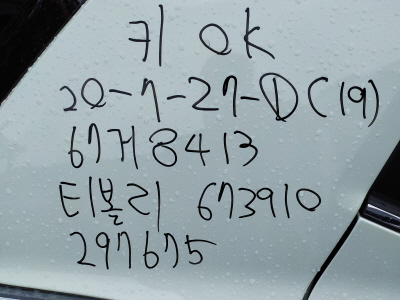 키 OK
20-7-27-D(19)
67거8413
티볼리 673910
297675